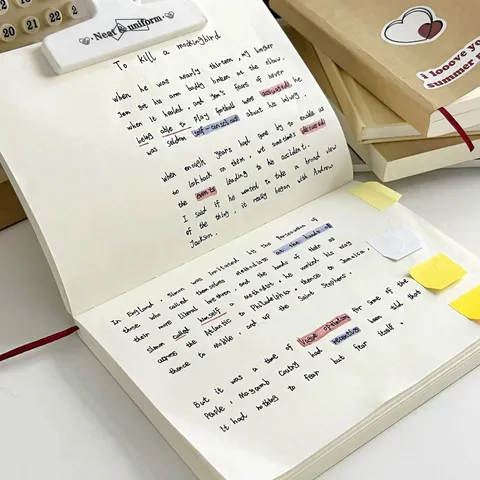 19 20 21 22 2
20 21 22 2
Neat & uniform
I looove yo
summer m
To kill a mockingbird
When he was nearly thirteen, my brother
Jem got his arm badly broken at the elbow.
When it healed, and Jem's fears of never
being able to play football were assuaged, he
was seldom self-conscious about his injury.
When enough years had gone by to enable us
to look back on them, we sometimes discussed
the events leading to his accident.
I said if he wanted to take a broad view
of the thing, it really began with Andrew
Jackson.
In England, Simon was irritated by the persecution of
those who called themselves Methodists at the hands of
their more liberal brethren, and
Simon called himself a Methodist, he worked his way
across the Atlantic to Philadelphia, thence to Jamaica,
thence to Mobile and up the Saint Stephens.
But it was a time of vague optimism for some of the
people, Maycomb County had recently been told that
it had nothing to fear but fear itself.